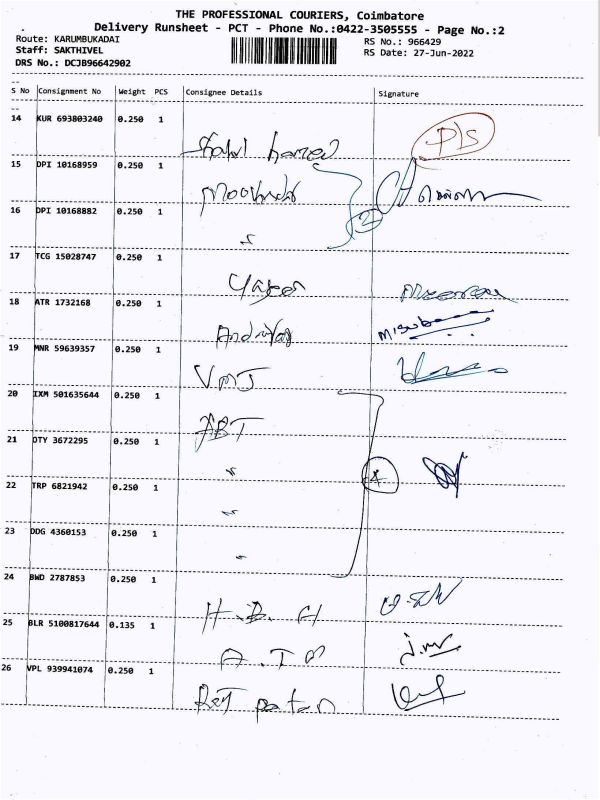 THE PROFESSIONAL COURIERS, Coimbatore
Delivery Runsheet - PCT - Phone No.:0422-3505555 - Page No.:2
Route: KARUMBUKADAI
RS No.: 966429
Staff: SAKTHIVEL
RS Date: 27-Jun-2022
DRS No.: DCJB96642902
S No Consignment No Weight PCS Consignee Details Signature
14 KUR 693803240 0.250 1
P/s
15 DPI 10168959 0.250 1
2
16 DPI 10168882 0.250 1
17 TCG 15028747 0.250 1
18 ATR 1732168 0.250 1
19 MNR 59639357 0.250 1
VMJ
20 IXM 501635644 0.250 1
ABT
21 OTY 3672295 0.250 1
4
22 TRP 6821942 0.250 1
23 DDG 4360153 0.250 1
24 BWD 2787853 0.250 1
25 BLR 5100817644 0.135 1
26 VPL 939941074 0.250 1